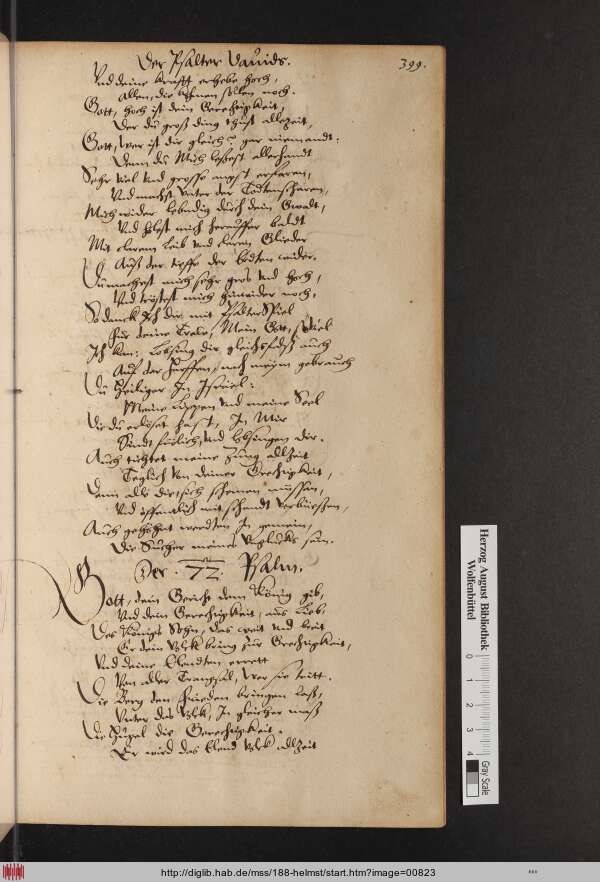 Der Psalter Dauids.
399.
Vnd deine krafft erhebe hoch,
allen, die kommen sollen noch.
Gott, hoch ist dein Gerechtigkeit,
Der du groß ding thust allezeit,
Gott, wer ist dir gleich? gar niemandt:
Denn du Mich lessest allerhandt
Sehr viel vnd grosse angst erfaren,
Vnd machst vnter der Todtenscharen,
Mich wider lebendig durch dein Gwalt,
Vnd holest mich herauffer baldt
Mit Leib vnd Glieder
Auß der tieffe der Erden wider.
Du machest mich sehr gros vnd hoch,
Vnd tröstest mich hinwider noch,
So danck Ich dir mit PsalterSpiel
Für deine Trewe, Mein Gott, viel
Ich lobsing dir gleichsfalß auch
Auf der Harffen, nach meym gebrauch
Du Heiliger In Israel:
Meine Lippen vnd meine Seel
Die du erlöset hast, In Mir
Sindt frölich, vnd lobsingen dir.
Auch tichtet meine Zung allzeit
Teglich von deiner Grechtigkeit,
Dann alle die sich schemen müssen,
Vnd öffentlich mit schandt
Auch gehöhnt werdten In gemein,
Die Sucher meines Vnglücks sein.
Der .72. Psalm.
Gott, dein Gericht dem König gib,
Vnd dein Gerechtigkeit, aus Lieb,
Des Königs Sohn, das weit vnd breit
Er dein Volk bring zur Grechtigkeit,
Vnd deine Elendten errett
Von aller Trangsal, wer sie tritt.
Die Berg den frieden bringen laß,
Vnter das Volk, In gleicher maß
Die Hügel die Gerechtigkeit.
Er wird das Elend Volk allzeit
Herzog August Bibliothek
Wolfenbüttel
0 1 2 3 4
Gray Scale
http://diglib.hab.de/mss/188-helmst/start.htm?image=00823